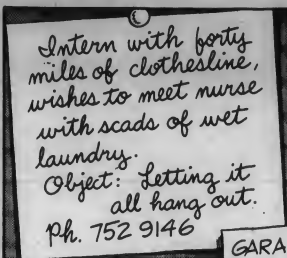 Intern with forty
miles of clothesline,
wishes to meet nurse
with scads of wet
laundry.
Object: Letting it
all hang out.
Ph. 752 9146
GARA